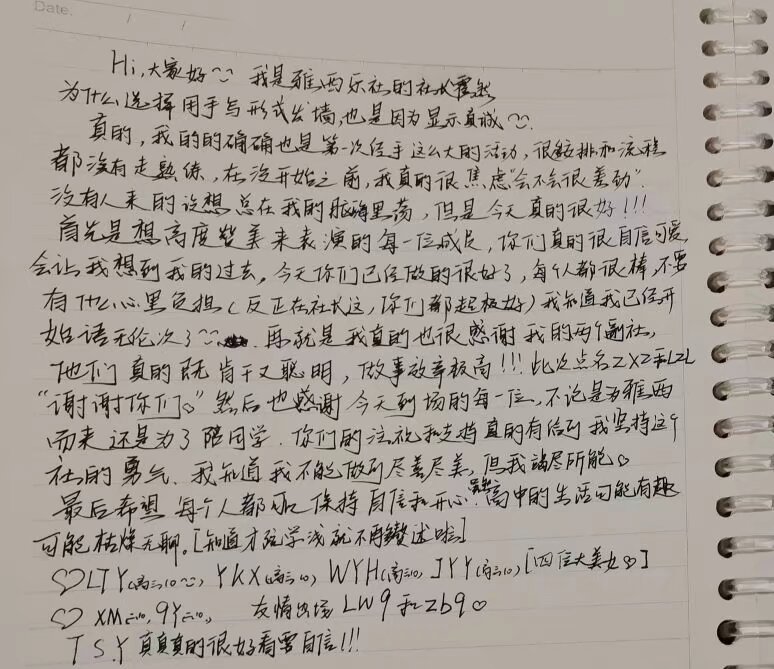 Date.
/ /
Hi,大家好 我是雅西乐社的社长
为什么选择用手写形式发墙,也是因为显示真诚
真的,我的的确确也是第一次经手这么大的活动,很多排和流程
都没有走熟练,在没开始之前,我真的很焦虑“会不会很差劲”.
没有人来的设想总在我的脑海里荡,但是今天真的很好!!!
首先是想高度赞美来表演的每一位成员,你们真的很自信可爱,
会让我想到我的过去,今天你们已经做的很好了,每个人都很棒,不要
有什么心里负担(反正在社长这,你们都超极好)我知道我已经开
始语无伦次了 再就是我真的也很感谢我的两个副社,
他们真的既肯干又聪明,做事效率极高!!!此次点名ZXZ和LZL
“谢谢你们。”然后也感谢今天到场的每一位,不论是为雅西
而来还是为了陪同学.你们的注视和支持真的有给到我坚持这个
社的勇气.我知道我不能做到尽善尽美,但我竭尽所能♡
最后希望每个人都可以保持自信和开心.高中的生活可能有趣
可能枯燥无聊。[知道才疏学浅就不再赘述啦]
♡LTY(高二10 YKX(高二10) WYH(高二10), JYY(高二10)[四位大美女♡]
♡ XM二10, 9Y二10, 友情出场LW9和zb9♡
TSY真真真的很好看要自信!!!